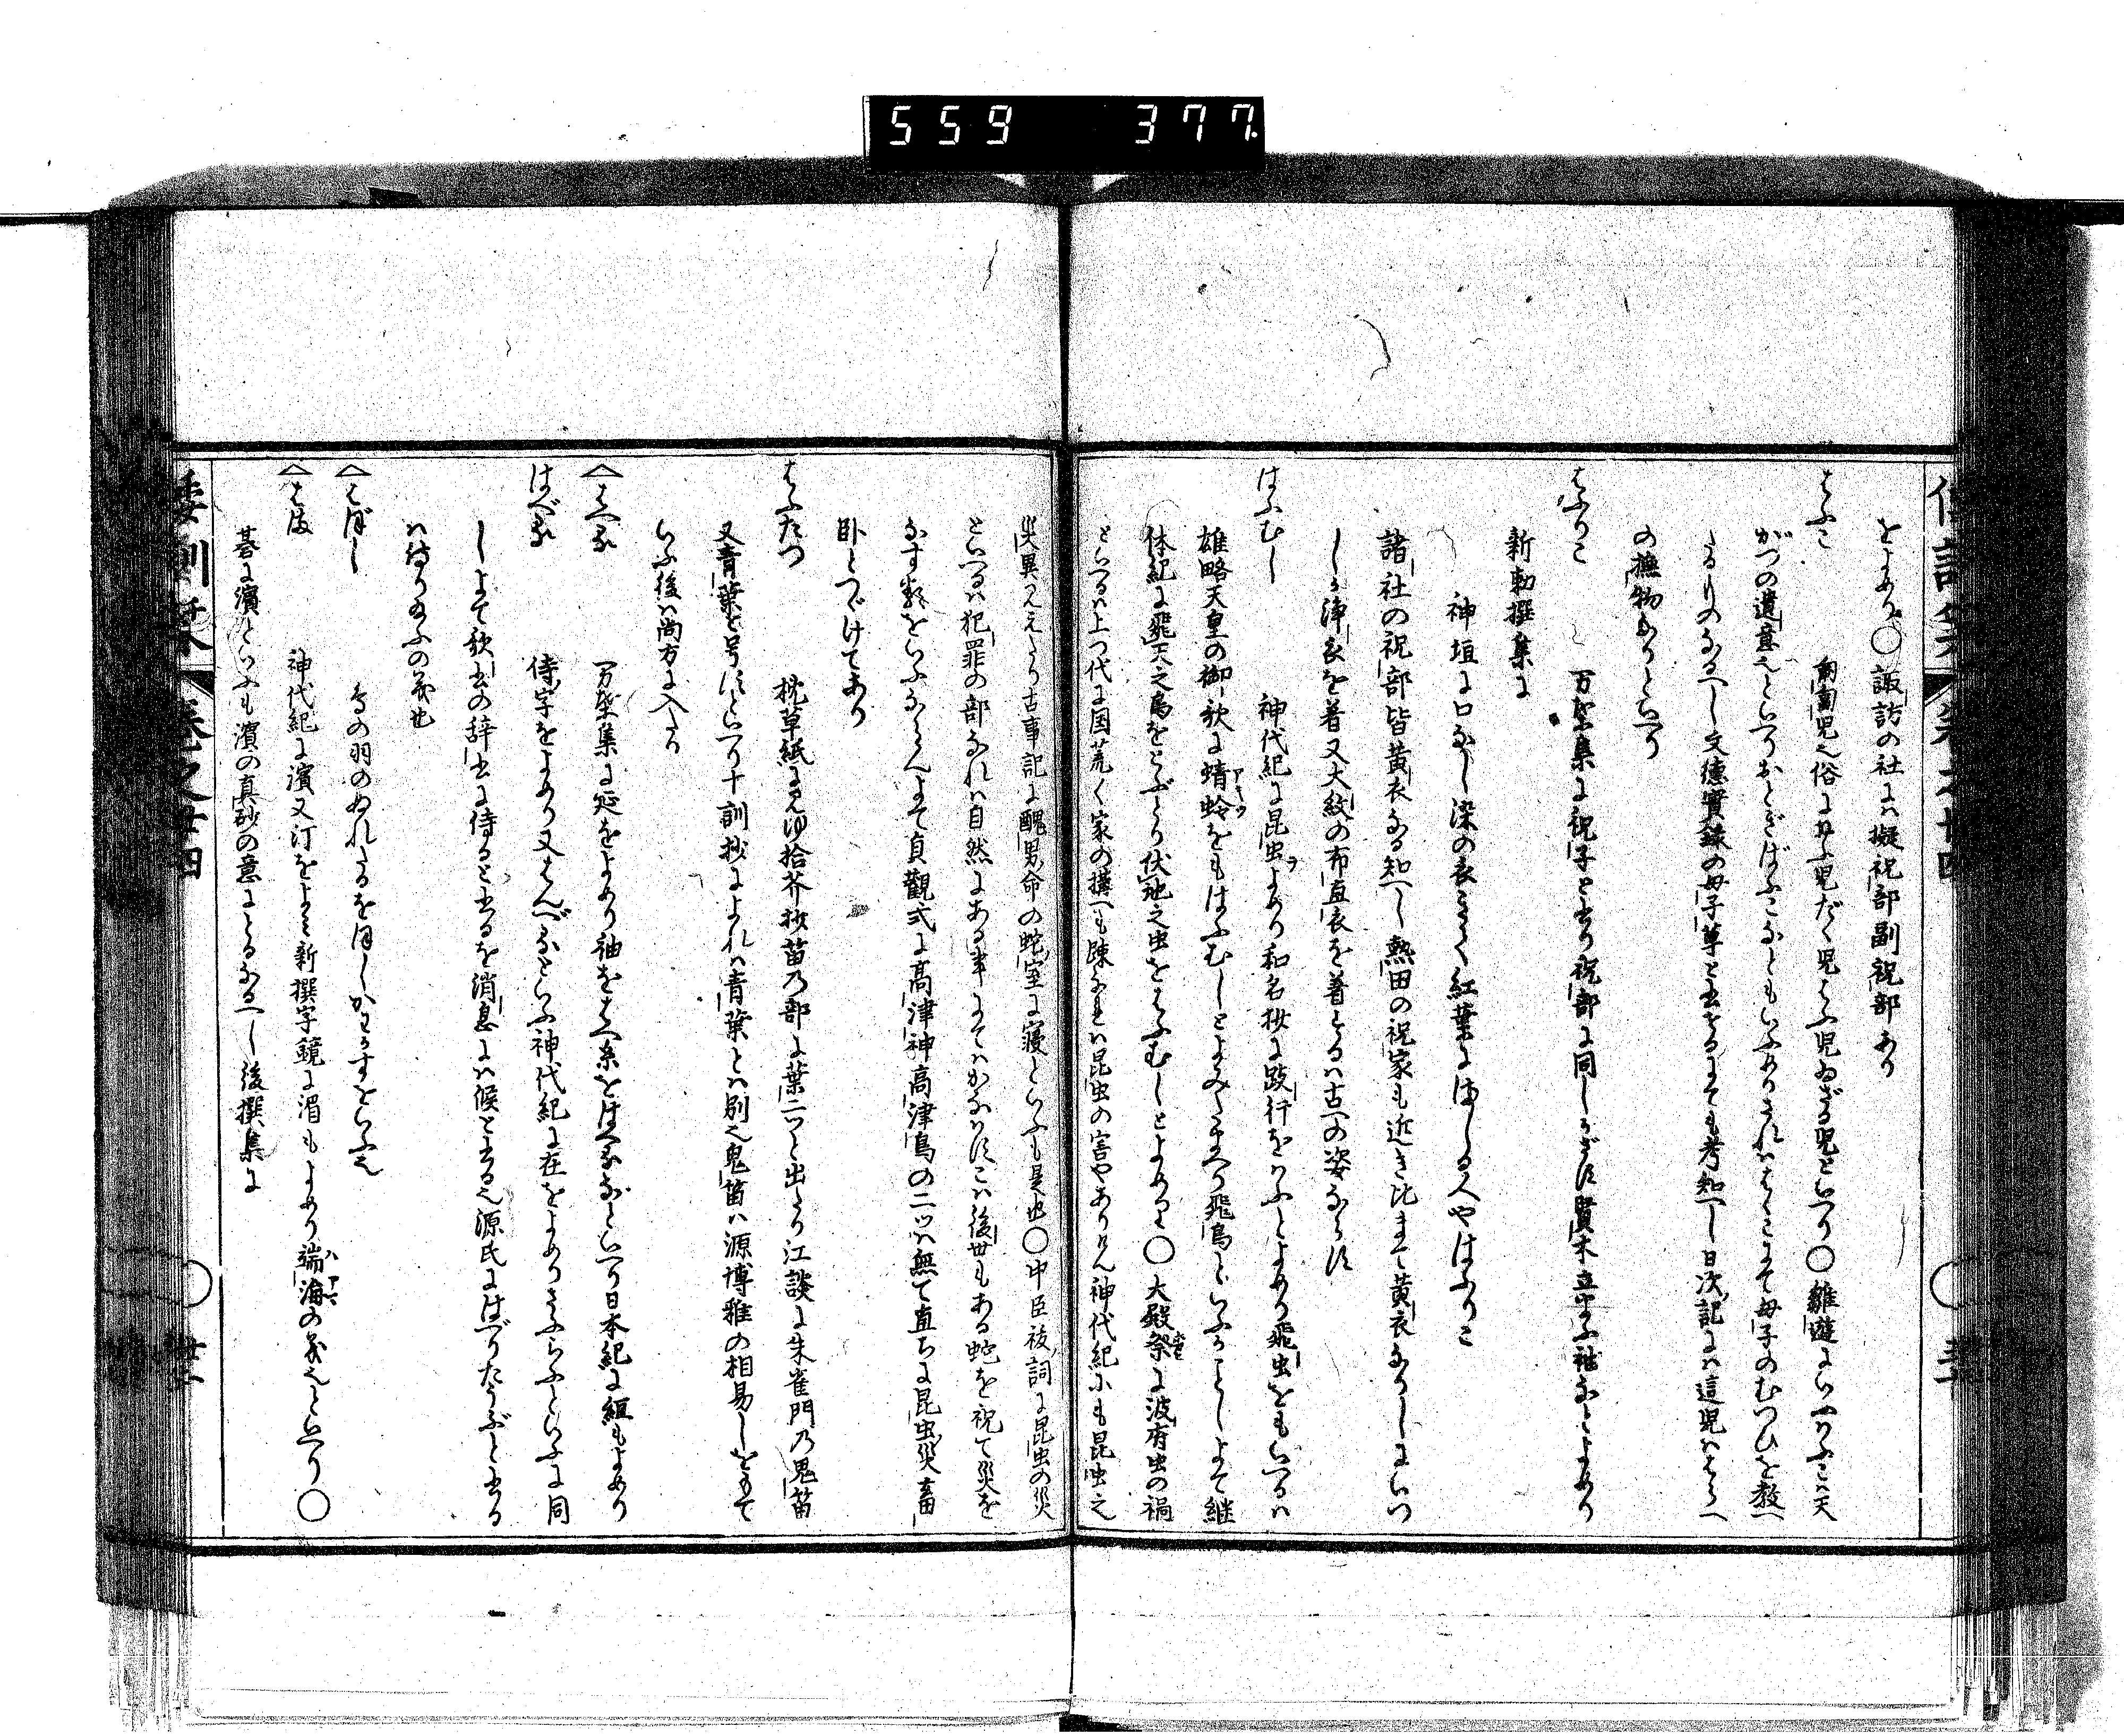 559 377
をよめり○諏訪の社には擬祝部副祝部あり
はふこ 匍匐児也俗にはふ児だく児はふ児ゐざる児といへり○雛遊にいへるはふこは天
がつの遺意也といへりおとぎばふこなともいふめりされははふことて母子のむつひを教へ
たるものなるへし文徳實録の母子草と書をるにても考知へし日次記には這児はらへ
の撫物なりといへり
はふりこ 万葉集に祝子と書り祝部に同し
新勅撰集に
神垣に口なし染の衣きて紅葉にましる人やはふりこ
諸社の祝部皆黄衣なる知へし熱田の祝家も近き比まて黄衣なりしにいつ
しか浄衣を着又大紋の布直衣を着とるは古への姿ならす
はふむし 神代紀に昆虫をよめり和名抄に跂行をはふとよめり飛虫をもいへるは
雄略天皇の御歌に蜻蛉をもはふむしとよみたまへり飛鳥といふかことしよて継
体紀に飛天之鳥をとぶとり伏地之虫をはふむしとよめり○大殿祭に波府虫の禍
といへるは上つ代は国荒く家の構へも疎なれは昆虫の害やありけん神代紀にも昆虫之
災異みえたり古事記に醜男命の蛇室に寝といふも是也○中臣祓詞に昆虫の災
といへるは犯罪の部なれは自然にある事にてはかなはすこは後世もある蛇を祝て災を
なす類をいふならんよて貞觀式に高津神高津鳥の二ツは無て直ちに昆虫災畜
卧とつゞけてあり
はふたつ 枕草紙にみゆ拾芥抄笛乃部に葉二ツと出たり江談に朱雀門乃鬼笛
又青葉と号すといへり十訓抄によれは青葉とは別也鬼笛は源博雅の相易しをもて
いふ後は尚方に入たり
はへる 万葉集に延をよめり袖をはへ糸をはへるなといへり日本紀に組もよめり
はべる 侍字をよめり又はんべるといふ神代紀に在をよめりさふらふといふに同
しよて歌書の辞書に侍ると書るを消息には候と書る也源氏にはべりたうぶと書る
は侍り給ふの義也
はぼし 鳥の羽のぬれたるをほしかわかすをいふ也
はま 神代紀に濱又汀をよみ新撰字鏡に湄もよめり端海の義也といへり○
碁に濱といふも濱の真砂の意にとるなるへし後撰集に
倭訓栞 巻之廿四